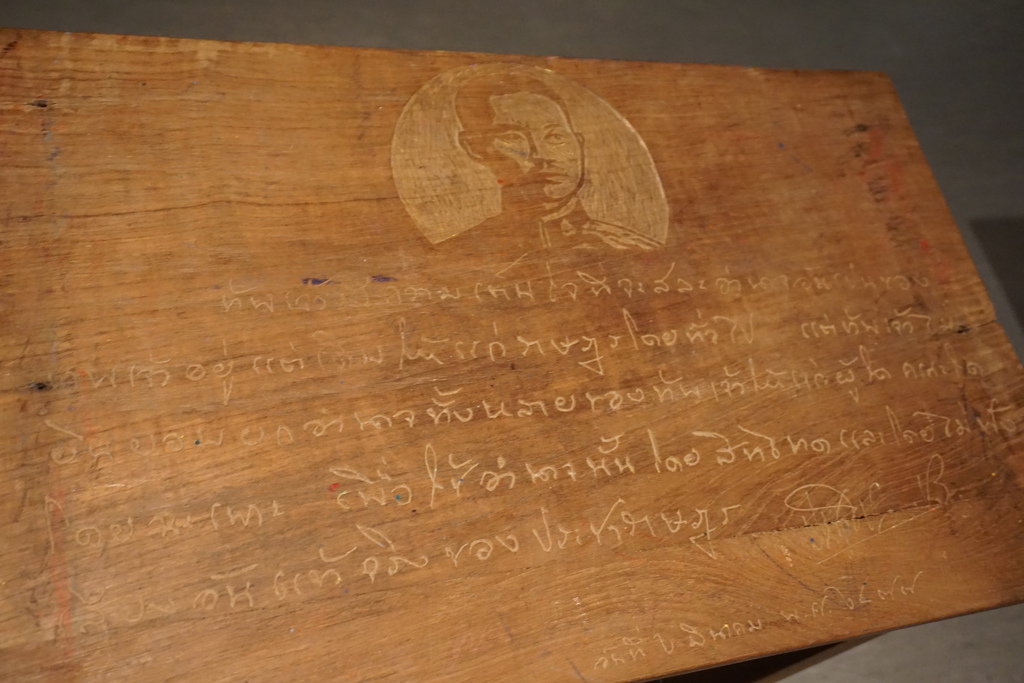 ข้าพเจ้ามีความเต็มใจที่จะสละอำนาจอันเป็นของ
ข้าพเจ้าอยู่แต่เดิมให้แก่ราษฎรโดยทั่วไป แต่ข้าพเจ้าไม่
ยินยอมยกอำนาจทั้งหลายของข้าพเจ้าให้แก่ผู้ใด คณะใด
โดยเฉพาะ เพื่อใช้อำนาจนั้นโดยสิทธิขาดและโดยไม่ฟัง
เสียงอันแท้จริงของประชาราษฎร
วันที่ ๒ มีนาคม พ.ศ. ๒๔๗๗